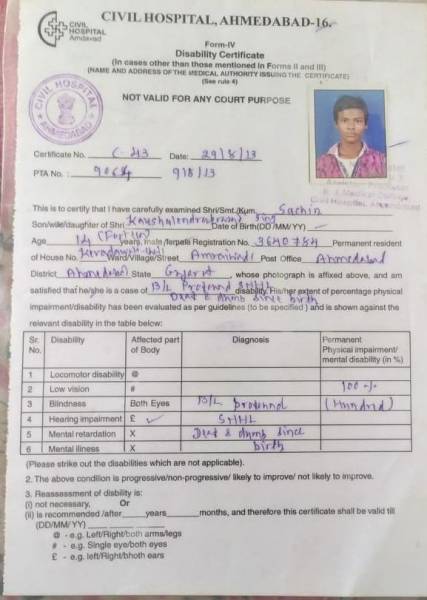 CIVIL HOSPITAL Amdavad
CIVIL HOSPITAL, AHMEDABAD-16.
Form-IV
Disability Certificate
(In cases other than those mentioned in Forms II and III)
(NAME AND ADDRESS OF THE MEDICAL AUTHORITY ISSUING THE CERTIFICATE)
(See rule 4)
CIVIL HOSPITAL AHMEDABAD
NOT VALID FOR ANY COURT PURPOSE
Certificate No. C-43 Date: 29/8/13
PTA No. : 90684 9/8/13
Civil Hospital, Ahmedabad
This is to certify that I have carefully examined Shri/Smt./Kum. Sachin
Son/wife/daughter of Shri Sing Date of Birth (DD/MM/YY) -
Age 14 (Fortin) years, male/female Registration No. 3640784 Permanent resident
of House No. Ward/Village/Street Amraiwadi Post Office Ahmedabad
District Ahmedabad State Gujarat, whose photograph is affixed above, and am
satisfied that he/she is a case of B/L Profound SNHL disability. His/her extent of percentage physical
Deaf & dumb since birth
impairment/disability has been evaluated as per guidelines (to be specified) and is shown against the
relevant disability in the table below:
Sr. No. Disability Affected part of Body Diagnosis Permanent Physical impairment/ mental disability (in %)
1 Locomotor disability @
2 Low vision # 100 %
3 Blindness Both Eyes B/L profound (Hundred)
4 Hearing impairment £ SNHL
5 Mental retardation X Deaf & dumb since
6 Mental illness X birth
(Please strike out the disabilities which are not applicable).
2. The above condition is progressive/non-progressive/ likely to improve/ not likely to improve.
3. Reassessment of disbility is:
(i) not necessary, Or
(ii) is recommended /after years months, and therefore this certificate shall be valid till
(DD/MM/YY)
@ - e.g. Left/Right/both arms/legs
# - e.g. Single eye/both eyes
£ - e.g. left/Right/bhoth ears